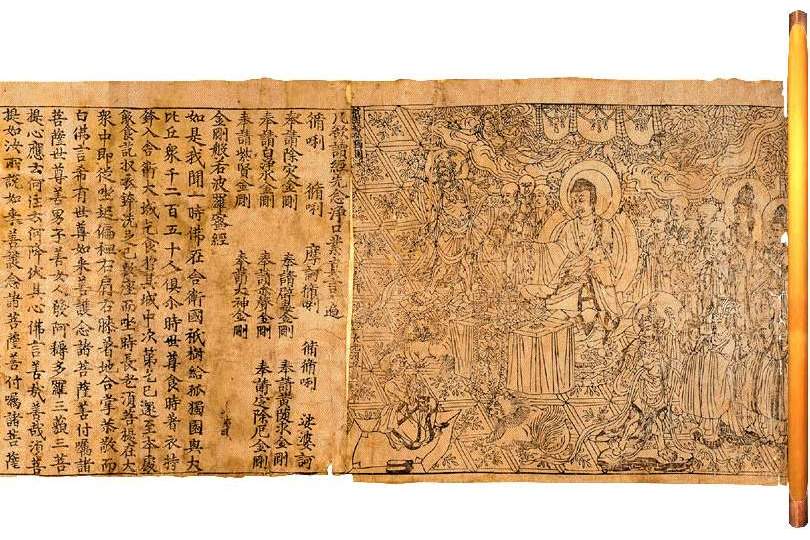 凡欲讀經先念淨口業真言一遍
脩唎 脩唎 摩訶脩唎 脩脩唎 娑婆訶
奉請除灾金剛 奉請辟毒金剛 奉請黃隨求金剛
奉請白淨水金剛 奉請赤聲金剛 奉請定除厄金剛
奉請紫賢金剛 奉請大神金剛
金剛般若波羅蜜經
如是我聞一時佛在舍衛國祇樹給孤獨園與大
比丘衆千二百五十人俱尒時世尊食時著衣持
鉢入舍衛大城乞食於其城中次第乞已還至本處
飯食訖收衣鉢洗足已敷座而坐時長老須菩提在大
衆中即從坐起偏袒右肩右膝著地合掌恭敬而
白佛言希有世尊如來善護念諸菩薩善付囑諸
菩薩世尊善男子善女人發阿耨多羅三藐三菩
提心應云何住云何降伏其心佛言善哉善哉須菩
提如汝所說如來善護念諸菩薩善付囑諸菩薩